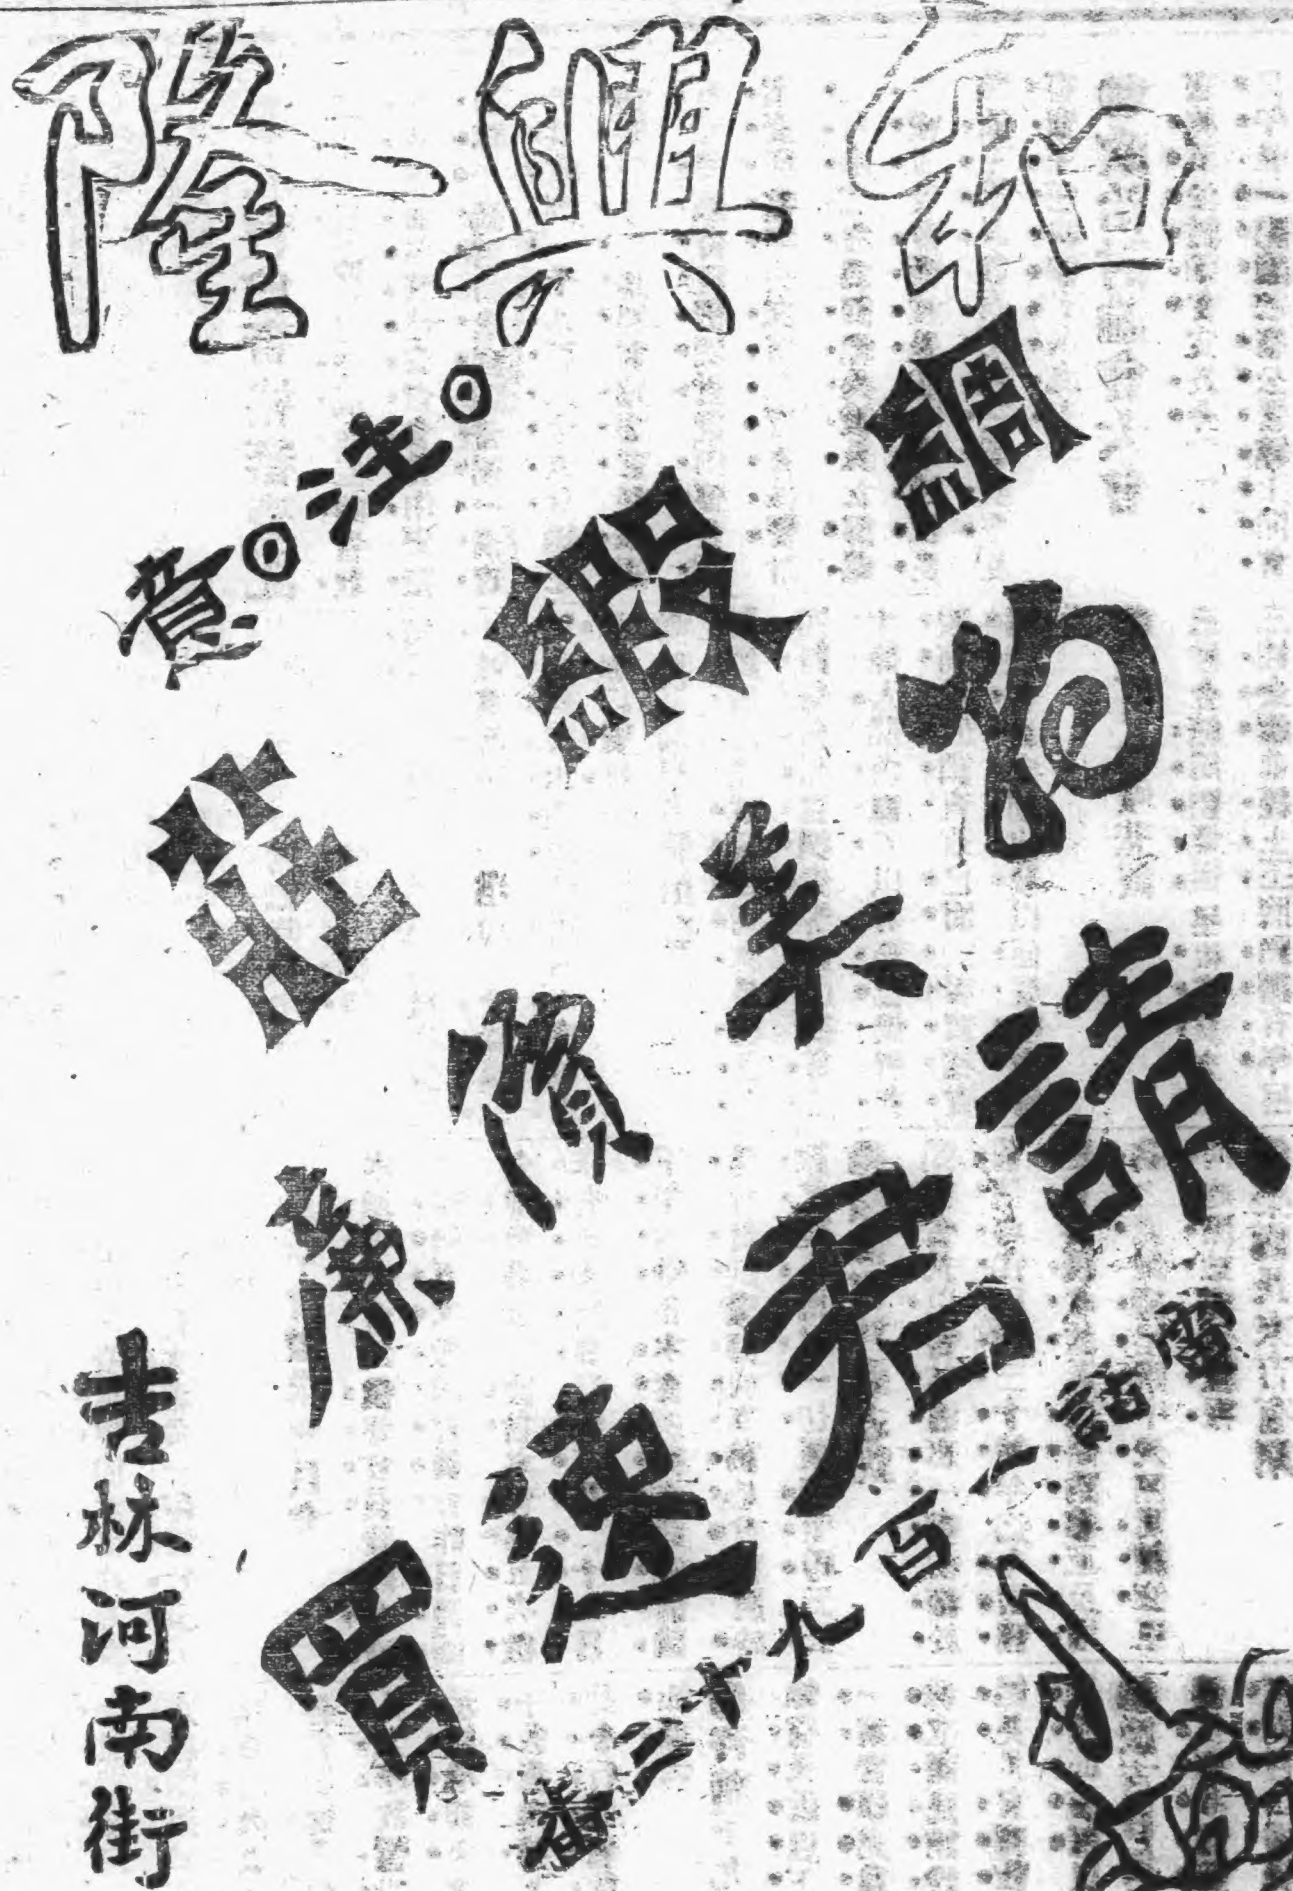 和興隆
綢緞莊
◎注◎意
物美價廉
請君速買
電話一百九十三番
吉林河南街